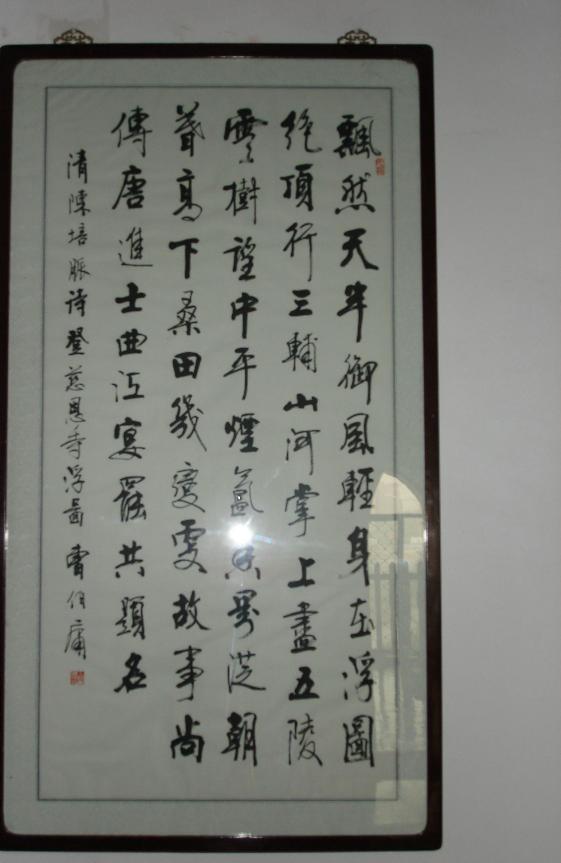 飄然天半御風輕身在浮圖
絶頂行三輔山河掌上盡五陵
雲樹望中平煙氳從朝
暮高下桑田幾變更故事尚
傳唐進士曲江宴罷共題名
清陳培脈詩登慈恩寺浮圖 曹伯庸